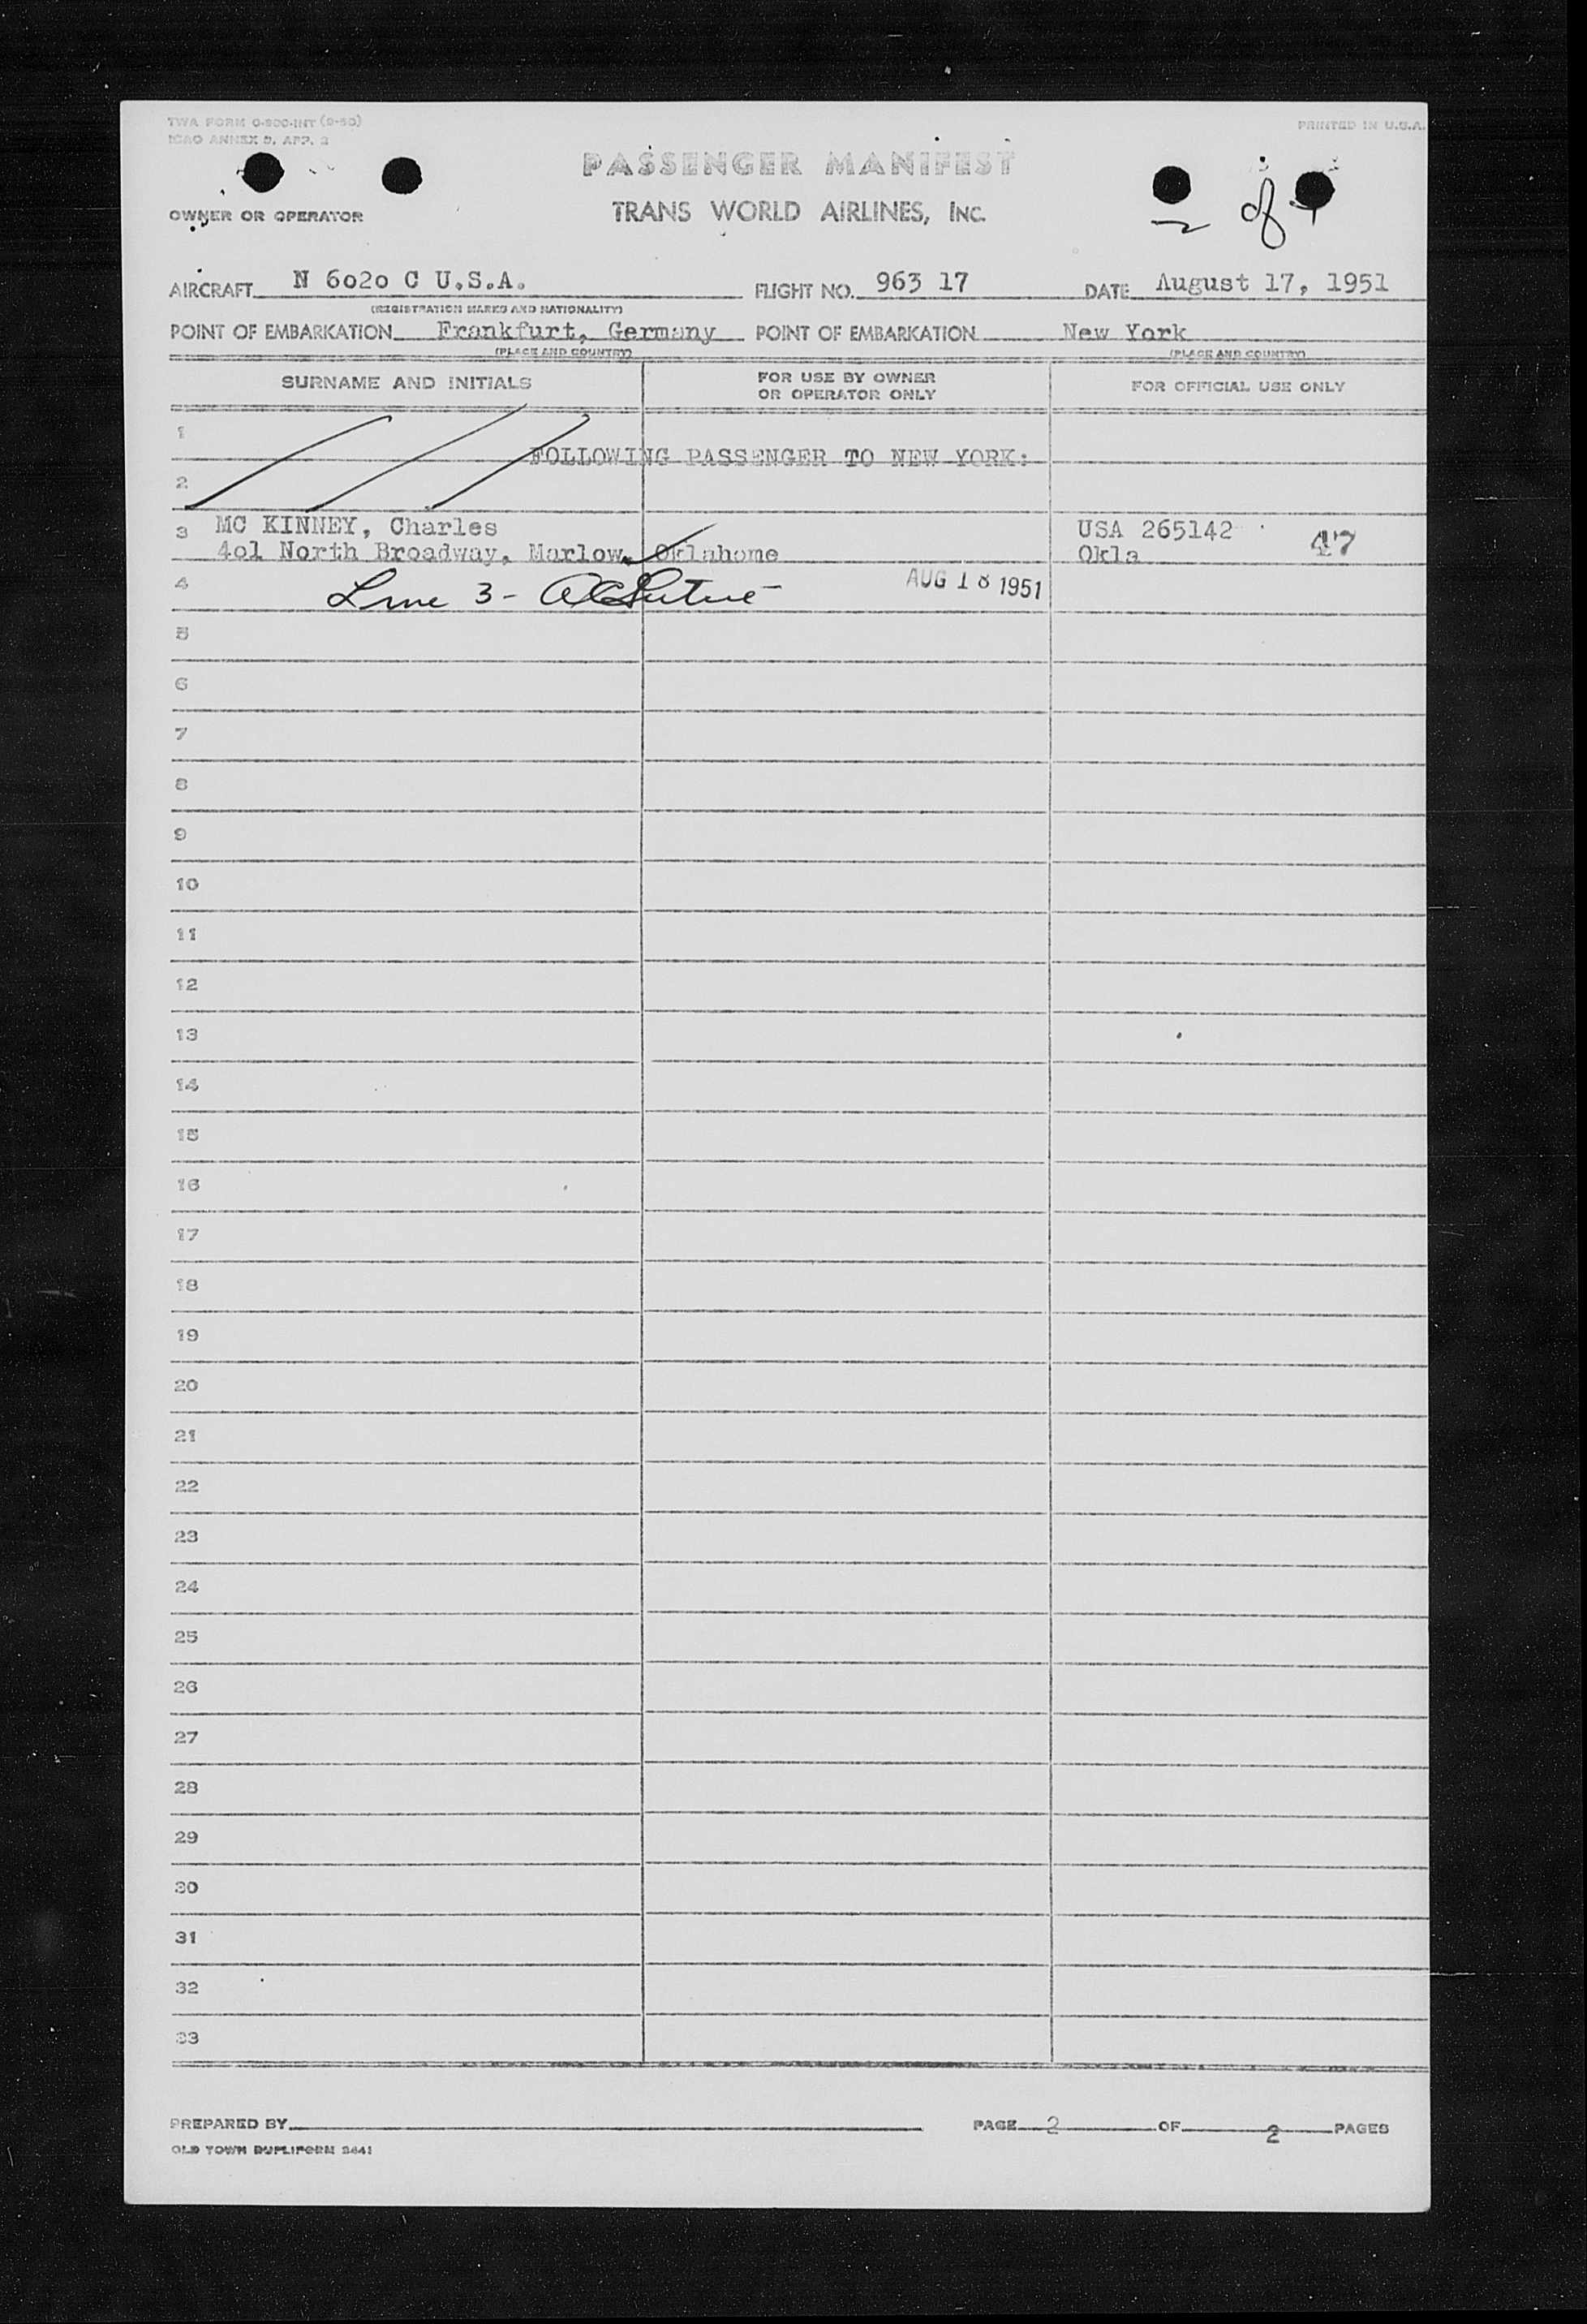 TWA FORM O-800-INT (9-50)
ICAO ANNEX 9, APP. 2
PRINTED IN U.S.A.
PASSENGER MANIFEST
OWNER OR OPERATOR
TRANS WORLD AIRLINES, INC.
2 of
AIRCRAFT N 6o2o C U.S.A. FLIGHT NO. 963 17 DATE August 17, 1951
(REGISTRATION MARKS AND NATIONALITY)
POINT OF EMBARKATION Frankfurt, Germany POINT OF EMBARKATION New York
(PLACE AND COUNTRY) (PLACE AND COUNTRY)
SURNAME AND INITIALS FOR USE BY OWNER OR OPERATOR ONLY FOR OFFICIAL USE ONLY
1
FOLLOWING PASSENGER TO NEW YORK:
2
3 MC KINNEY, Charles USA 265142 47
4o1 North Broadway, Marlow, Oklahome Okla
4 Line 3 - AUG 18 1951
5
6
7
8
9
10
11
12
13
14
15
16
17
18
19
20
21
22
23
24
25
26
27
28
29
30
31
32
33
PREPARED BY PAGE 2 OF 2 PAGES
OLD TOWN DUPLIFORM 2441